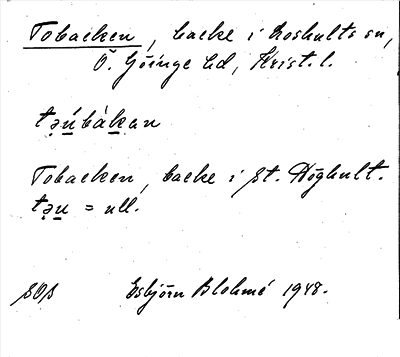 Tobacken, backe i Loshults sn,
Ö. Göinge hd, Krist. l.
tə̣úbàkan
Tobacken, backe i St. Höghult.
tə̣u = ull.
SOS Esbjörn Blohmé 1948.